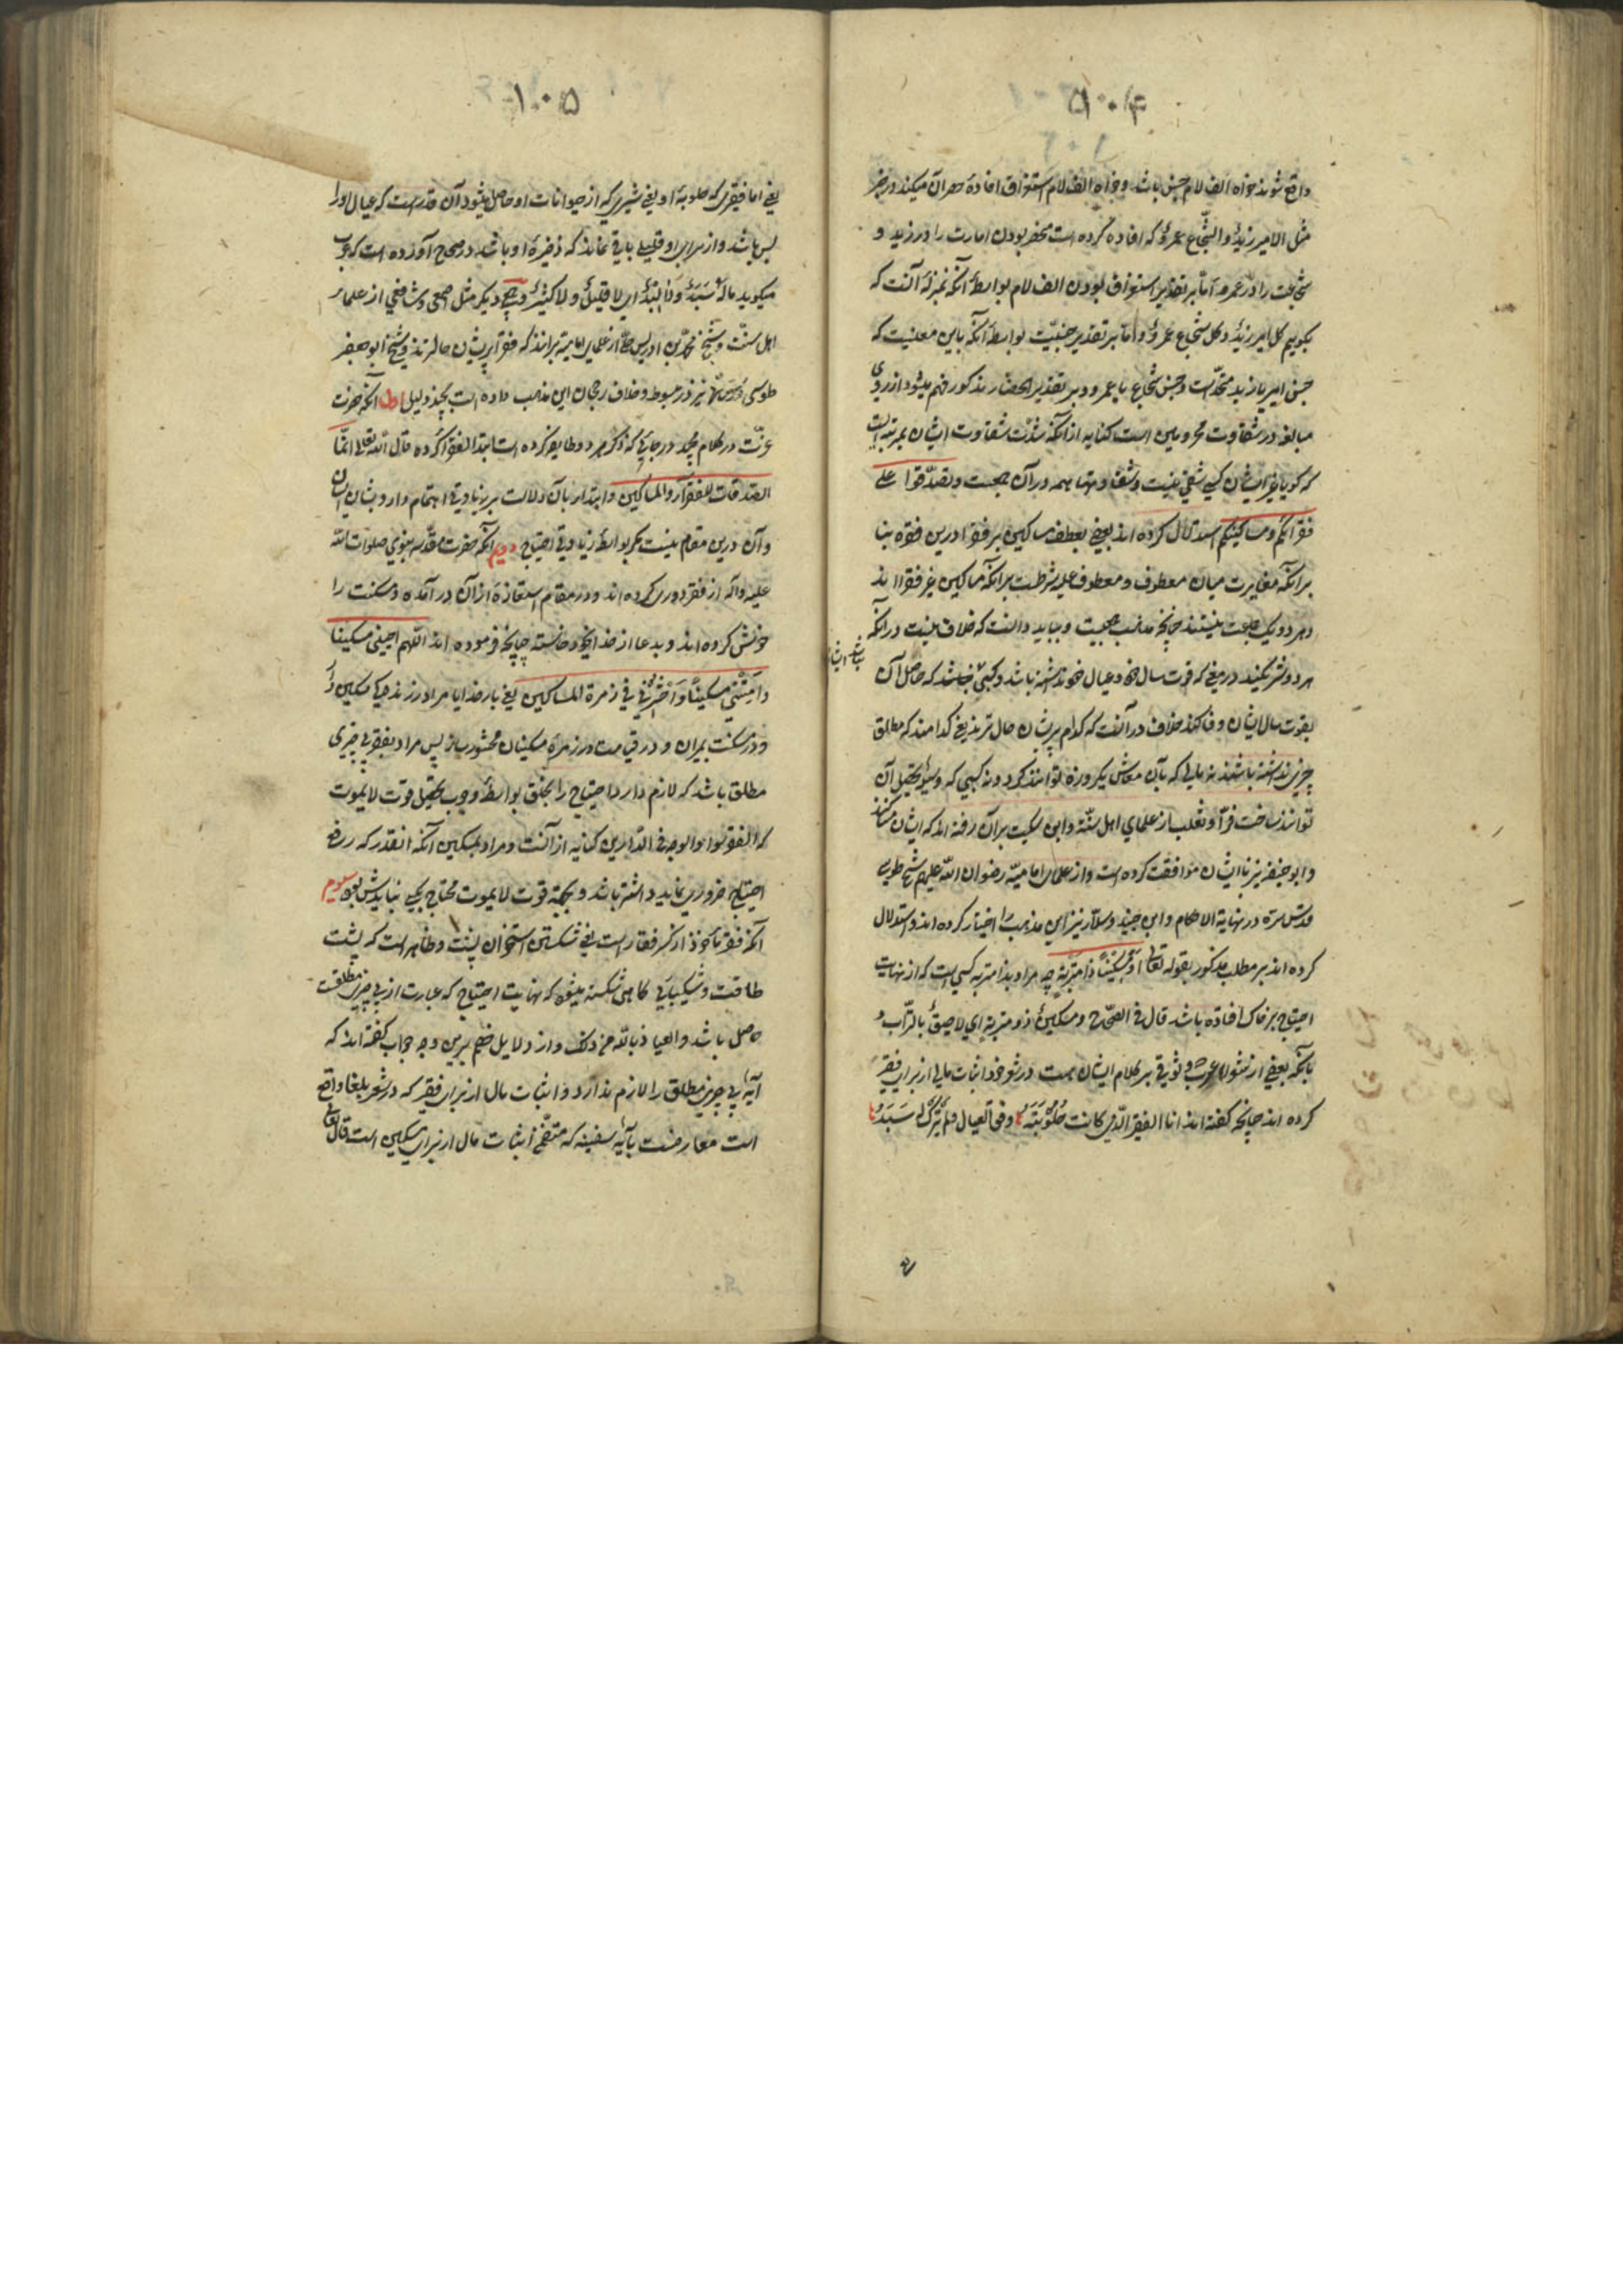 ۵۰۴
واقع شوند خواه الف لام جنس باشد و خواه الف لام استغراق افادهٔ حصر آن میکند در خبر
مثل الامیر زیدٌ و الشّجاع عمروٌ که افاده کرده است منحصر بودن امارت را در زید و
شجاعت را در عمرو امّا بر تقدیر استغراق بودن الف لام بواسطهٔ آنکه بمنزلهٔ آنست که
بگوییم کل امیر زیدٌ و کل شجاع عمروٌ و امّا بر تقدیر جنسیّت بواسطهٔ آنکه باین معنیست که
جنس امیر با زید متحّد است و جنس شجاع با عمرو و بر تقدیر انحصار مذکور فهم میشود از روی
مبالغه در شقاوت محرومین است کنایه از آنکه شدّت شقاوت ایشان بمرتبه ایست
که گویا بغیر ایشان کسی شقی نیست و شقاوتها همه در آن جمعست و تصدّقوا علی
فقرائکم و مساکینکم استدلال کرده اند بعضی بعطف مساکین بر فقرا درین فقره بنا
برآنکه مغایرت میان معطوف و معطوف علیه شرطست برآنکه مساکین غیر فقرااند
و هر دو یک جماعت نیستند چنانچه مذهب جمعیست و بباید دانست که خلاف نیست در آنکه
هر دو شریکند در معنی که قوت سال خود و عیال خود نداشته باشد و کسبی نباشد که حاصل آن
بقوت سال ایشان وفا کند خلاف در آنست که کدام پریشان حال ترند یعنی کدامند که مطلق
چیزی نداشته باشند نه مالی که بآن معاش یکروزه توانند کرد و نه کسبی که وسیلهٔ تحصیل آن
توانند ساخت فرّاء و ثعلب از علمای اهل سنّة و ابن سکیت برآن رفته اند که ایشان مساکینند
و ابو حنیفه نیز با ایشان موافقت کرده است و از علمای امامیّه رضوان اللّه علیهم شیخ طوسی
قدّس سرّه در نهایة الاحکام و ابن جنید و سلّار نیز این مذهب را اختیار کرده اند و استدلال
کرده اند بر مطلب مذکور بقوله تعالی اَوْ مِسْکیناً ذا مَتْرَبَةٍ چه مراد بذا متربه کسی است که از نهایت
احتیاج بر خاک افتاده باشد قال فی الصّحاح و مسکینٌ ذو متربة ای لاصقٌ بالتّراب و
بآنکه بعضی از شعرای عرب که وثوقی بر کلام ایشان هست در شعر خود اثبات مالی از برای فقیر
کرده اند چنانچه گفته اند انا الفقیر الّذی کانت حَلُوبَتُهُ وفق العیال فلم یُتْرَکْ لَهُ سَبَدُ
۱۰۵
یعنی اما فقیری که حلوبهٔ او یعنی شیری که از حیوانات او حاصل میشود آن قدر است که عیال او را
بس باشد و از برای او قلیلی باقی نماند که ذخیرهٔ او باشد در صحاح آورده است که عرب
میگوید ماله سَبَدٌ وَلا لَبَدٌ ای لا قلیلٌ و لا کثیرٌ و جمعی دیگر مثل اصمعی و شافعی از علمای
اهل سنّت و شیخ محمّد بن ادریس حلّی از علمای امامیّه برانند که فقرا پریشان حالترند و شیخ ابو جعفر
طوسی نیز در مبسوط و خلاف رجحان این مذهب داده است بچند دلیل اول آنکه حضرت
عزّت در کلام مجید در جائی که ذکر هر دو طایفه کرده است ابتدا بفقرا کرده قال اللّه تعالی انّما
الصّدقات للفقرآء و المساکین و ابتدا بآن دلالت بر زیادتی اهتمام دارد بشان ایشان
و آن درین مقام نیست مگر بواسطهٔ زیادتی احتیاج دویم آنکه حضرت مقدّسه نبوی صلوات اللّه
علیه و آله از فقر دوری کرده اند و در مقام استعاذه از آن درآمده و مسکنت را
خواهش کرده اند و بدعا از خدا بخود خواسته چنانچه فرموده اند اللّهم احینی مسکینا
وَاَمِتْنی مسکیناً وَاحْشُرْنی فی زمرة المساکین یعنی بار خدایا مرا در زندگی مسکین دار
و در مسکنت بمیران و در قیامت در زمرهٔ مسکینان محشور ساز پس مراد بفقر بی چیزی
مطلق باشد که لازم دارد احتیاج را بخلق بواسطهٔ وجوب تحصیل قوت لا یموت
که الفقر سواد الوجه فی الدّارین کنایه از آنست و مراد بمسکین آنکه انقدر که رفع
احتیاج ضروری نماید داشته باشد و بجهة قوت لا یموت محتاج بکسی نباید شد سیوم
آنکه فقر مأخوذ از کسر فقار است یعنی شکستن استخوان پشت و ظاهر است که پشت
طاقت و شکیبائی گاهی شکسته میشود که نهایت احتیاج که عبارت از بی چیزی مطلقست
حاصل باشد و العیاذ باللّه من ذلک و از دلایل خصم برین وجه جواب گفته اند که
آیه بی چیزی مطلق را لازم ندارد و اثبات مال از برای فقیر که در شعر بلغا واقع
است معارضست بآیهٔ سفینه که متضمّن اثبات مال از برای مسکین است قال تعالی